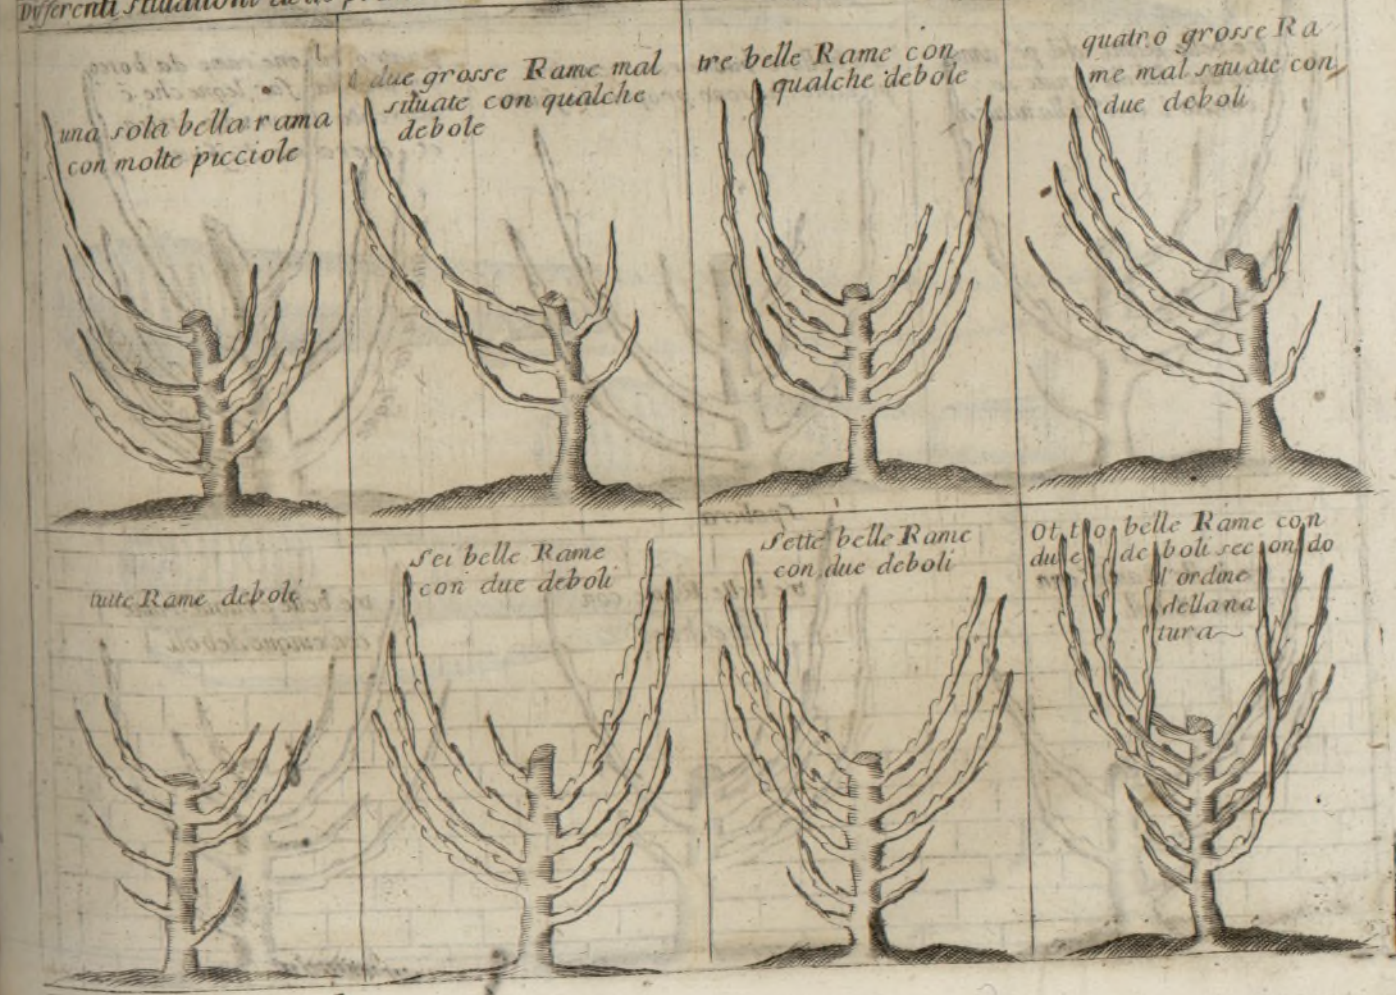 Differenti situationi
una sola bella rama
con molte picciole
due grosse Rame mal
situate con qualche
debole
tre belle Rame con
qualche debole
quatro grosse Ra
me mal situate con
due deboli
tutte Rame deboli
Sei belle Rame
con due deboli
Sette belle Rame
con due deboli
Otto belle Rame con
due deboli secondo
l'ordine
della na
tura